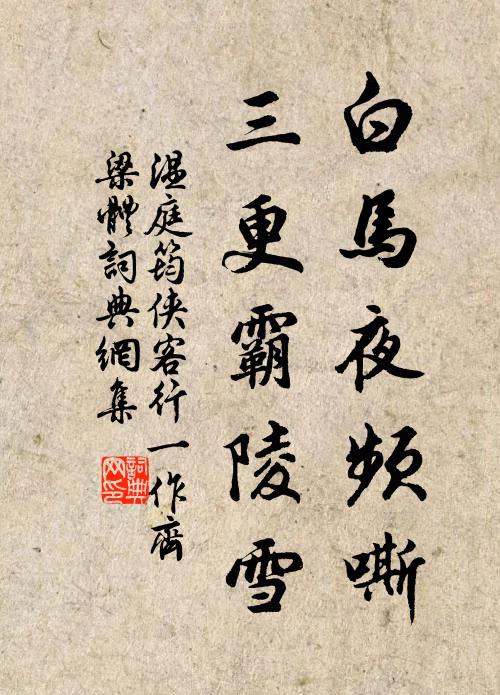 白馬夜頻嘶
三更霸陵雪
溫庭筠俠客行一作齊
梁體詞典網集
詞典網印